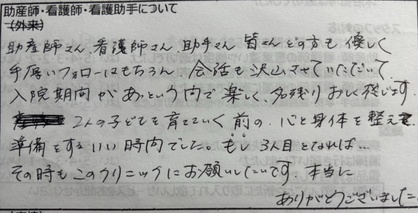 助産師・看護師・看護助手について
(外来)
助産師さん、看護師さん、助手さん 皆さんどの方も優しく
手厚いフォローはもちろん、会話も沢山させていただいて、
入院期間があっという間で楽しく、名残りおしく感じます。
2人の子どもを育てていく前の、心と身体を整え
準備をするいい時間でした。もし3人目となれば…
その時もこのクリニックにお願いしたいです。本当に
ありがとうございました